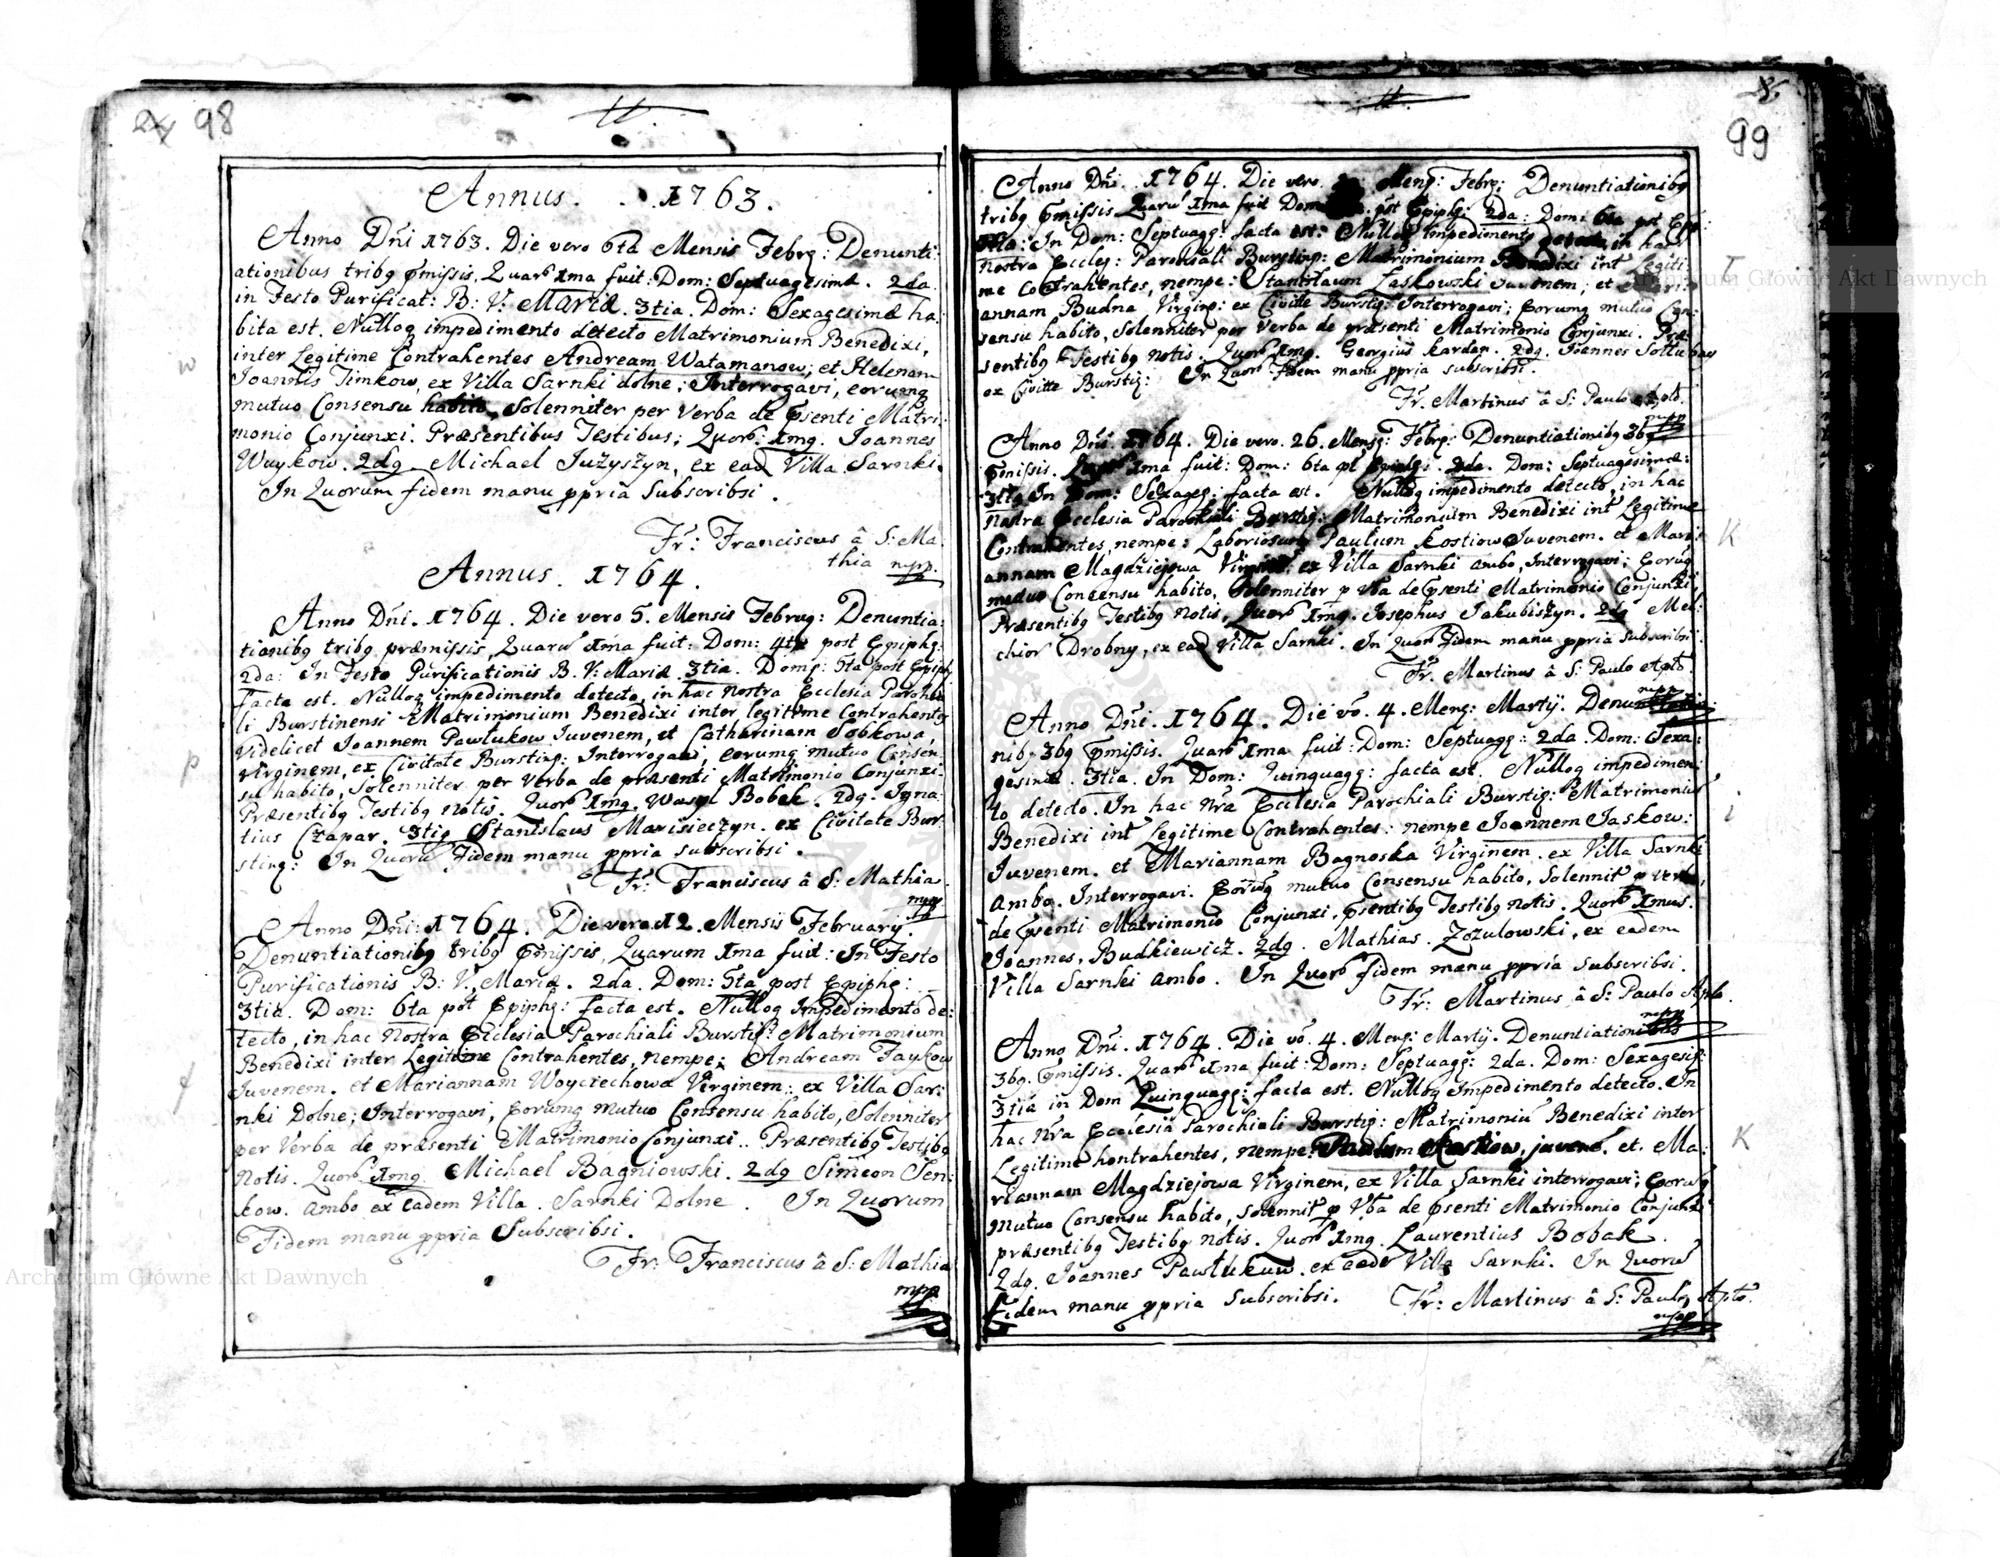 98
Annus. 1763.
Anno Dñi 1763. Die vero 6ta Mensis Febrg: Denunti:
ationibus tribg pmissis, Quarũ 1ma fuit: Dom: Septuagesimæ. 2da
in Festo Purificat: B: V: Mariæ. 3tia. Dom: Sexagesimæ ha:
bita est. Nulloq impedimento detecto Matrimonium Benedixi,
inter Legitime Contrahentes Andream Watamanow, et Helenam
Joannis Timkow, ex Villa Sarnki dolne; Interrogavi, eorumq
mutuo Consensu habito, Solenniter per Verba de psenti Matri:
monio Conjunxi. Præsentibus Testibus; Quorũ: 1mg. Joannes
Wuykow. 2dg Michael Juzyszyn, ex ead Villa Sarnki.
In Quorum fidem manu ppria Subscribsi.
Fr: Franciscus â S: Ma:
thia mpp.
w
Annus. 1764.
Anno Dñi. 1764. Die vero 5. Mensis Februg: Denuntia:
tionibg tribg præmissis, Quarũ 1ma fuit: Dom: 4ta post Epiphg:
2da: In Festo Purificationis B. V: Mariæ. 3tia. Domg: 5ta post Epiph
facta est. Nulloq impedimento detecto, in hac Nostra Ecclesia Parohia
li Burstinensi Matrimonium Benedixi inter legitime Contrahentes
Videlicet Joannem Pawlukow Juvenem, et Catharinam Sobkowa,
Virginem, ex Civitate Bursting: Interrogavi, eorumq mutuo Consen:
su habito, Solenniter per Verba de præsenti Matrimonio Conjunxi.
Præsentibg Testibg notis. Quorũ 1mg. Wasyl Bobak. 2dg. Igna:
tius Czapar. 3tig Stanislaus Marisieczyn. ex Civitate Bur:
sting: In Quorũ Fidem manu ppria subscribsi.
Fr: Franciscus â S: Mathia.
mpp
p
Anno Dñi: 1764. Die vero 12. Mensis February.
Denuntiationibg tribg pmissis, Quarum 1ma fuit: In Festo
Purificationis B: V: Mariæ. 2da. Dom: 5ta post Epiphg:
3tia. Dom: 6ta pôt Epiphg: facta est. Nulloq Impedimento de:
tecto, in hac Nostra Ecclesia Parochiali Burstig: Matrimonium
Benedixi inter Legitime Contrahentes, nempe; Andream Faykow
Juvenem. et Mariannam Woyciechowa Virginem: ex Villa Sar:
nki Dolne; Interrogavi, Eorumq mutuo Consensu habito, Solenniter
per Verba de præsenti Matrimonio Conjunxi.. Præsentibg Testibg
Notis. Quorũ 1mg Michael Bagniowski. 2dg Simeon Sen:
kow. ambo ex eadem Villa. Sarnki Dolne. In Quorum
Fidem manu ppria Subscribsi.
Fr: Franciscus â S: Mathia
mpp
f
99
Anno Dñi. 1764. Die vero Mensg: Febrg: Denuntiationibg
tribg pmissis Quarũ 1ma fuit Dom pôt Epiphg: 2da: Dom: 6ta pôt Epp:
3tia: In Dom: Septuagg: facta est: Nulloq impedimento detecto, in hac
Nostra Eccleg: Parohiali Burstinp: Matrimonium Benedixi int Legiti:
me Cotrahentes, nempe: Stanislaum Laskowski Juvenem; et
annam Budna Virging: ex Civitte Burstig: Interrogavi; Eorumq mutuo Con:
sensu habito, Solenniter per Verba de præsenti Matrimonio Conjunxi. Præ
sentibg Testibg notis. Quorũ 1mg. Georgius kardan. 2dg. Joannes Sollubay
ex Civitte Burstig: In Quorũ Fidem manu ppria subscribsi.
Fr. Martinus â S: Paulo Aplô.
mpp
Anno Dñi 1764. Die vero. 26. Mensg: Febrg: Denuntiationibg 3bg
pmissis. Quarũ 1ma fuit: Dom: 6ta pt Epiphg: 2da. Dom: Septuagesimæ:
3tia In Dom: Sexageg: facta est. Nulloq impedimento detecto, in hac
Nostra Ecclesia Parochiali Burstig: Matrimonium Benedixi int Legitime
Contrahentes, nempe: Laboriosum Paulum Kostiow Juvenem. et Mari:
annam Magdziejowa Virginem, ex Villa Sarnki ambo, Interrogavi; Eorũq
mutuo Consensu habito, Solenniter p Vba de psenti Matrimonio Conjunxi,
Præsentibg Testibg notis, Quorũ 1mg. Josephus Jakubiszyn. 2dg Mel:
chior Drobny, ex ead Villa Sarnki. In Quorũ Fidem manu ppria subscribsi
Fr. Martinus â S: Paulo Aplô
mpp
K
Anno Dñi. 1764. Die vô. 4. Meng: Martÿ. Denuntiatio
nibg 3bg pmissis. Quarũ 1ma fuit: Dom: Septuagg: 2da. Dom: Sexa:
gesimæ. 3tia. In Dom: Quinquagg: facta est. Nulloq impedimen:
to detecto. In hac Nrâ Ecclesia Parochiali Burstig: Matrimoniũ
Benedixi int Legitime Contrahentes: nempe Joannem Jaskow:
Juvenem. et Mariannam Bagnoska Virginem. ex Villa Sarnki
ambo. Interrogavi. Eorũq mutuo Consensu habito, Solennit p verba,
de psenti Matrimonio Conjunxi, psentibg Testibg notis. Quorũ 1mus.
Joannes, Budkiewicz. 2dg. Mathias. Zozulowski, ex eadem
Villa Sarnki ambo. In Quorũ fidem manu ppria subscribsi.
Fr: Martinus â S: Paulo Aplo.
mpp
i
Anno Dñi. 1764. Die vô. 4. Meng: Martÿ. Denuntiationibus
3bg. pmissis. Quarũ 1ma fuit: Dom: Septuagg: 2da. Dom: Sexagesig:
3tia in Dom Quinquagg: facta est. Nulloq Impedimento detecto. In
hac Nrâ Ecclesia Parochiali Burstig: Matrimoniũ Benedixi inter
Legitime kontrahentes, nempe: Paulum Kostiow, juvenẽ. et. Ma:
riannam Magdziejowa Virginem, ex Villa Sarnki interrogavi; Eorũq
mutuo Consensu habito, solennit p Vba de psenti Matrimonio Conjunxi
præsentibg Testibg notis. Quorũ 1mg. Laurentius Bobak.
2dg. Joannes Pawlukuw. ex eadẽ Villa Sarnki. In Quorũ
Fidem manu ppria Subscribsi. Fr: Martinus â S: Paulo, Aplô.
mpp
K
Archiwum Główne Akt Dawnych
Archiwum Główne Akt Dawnych